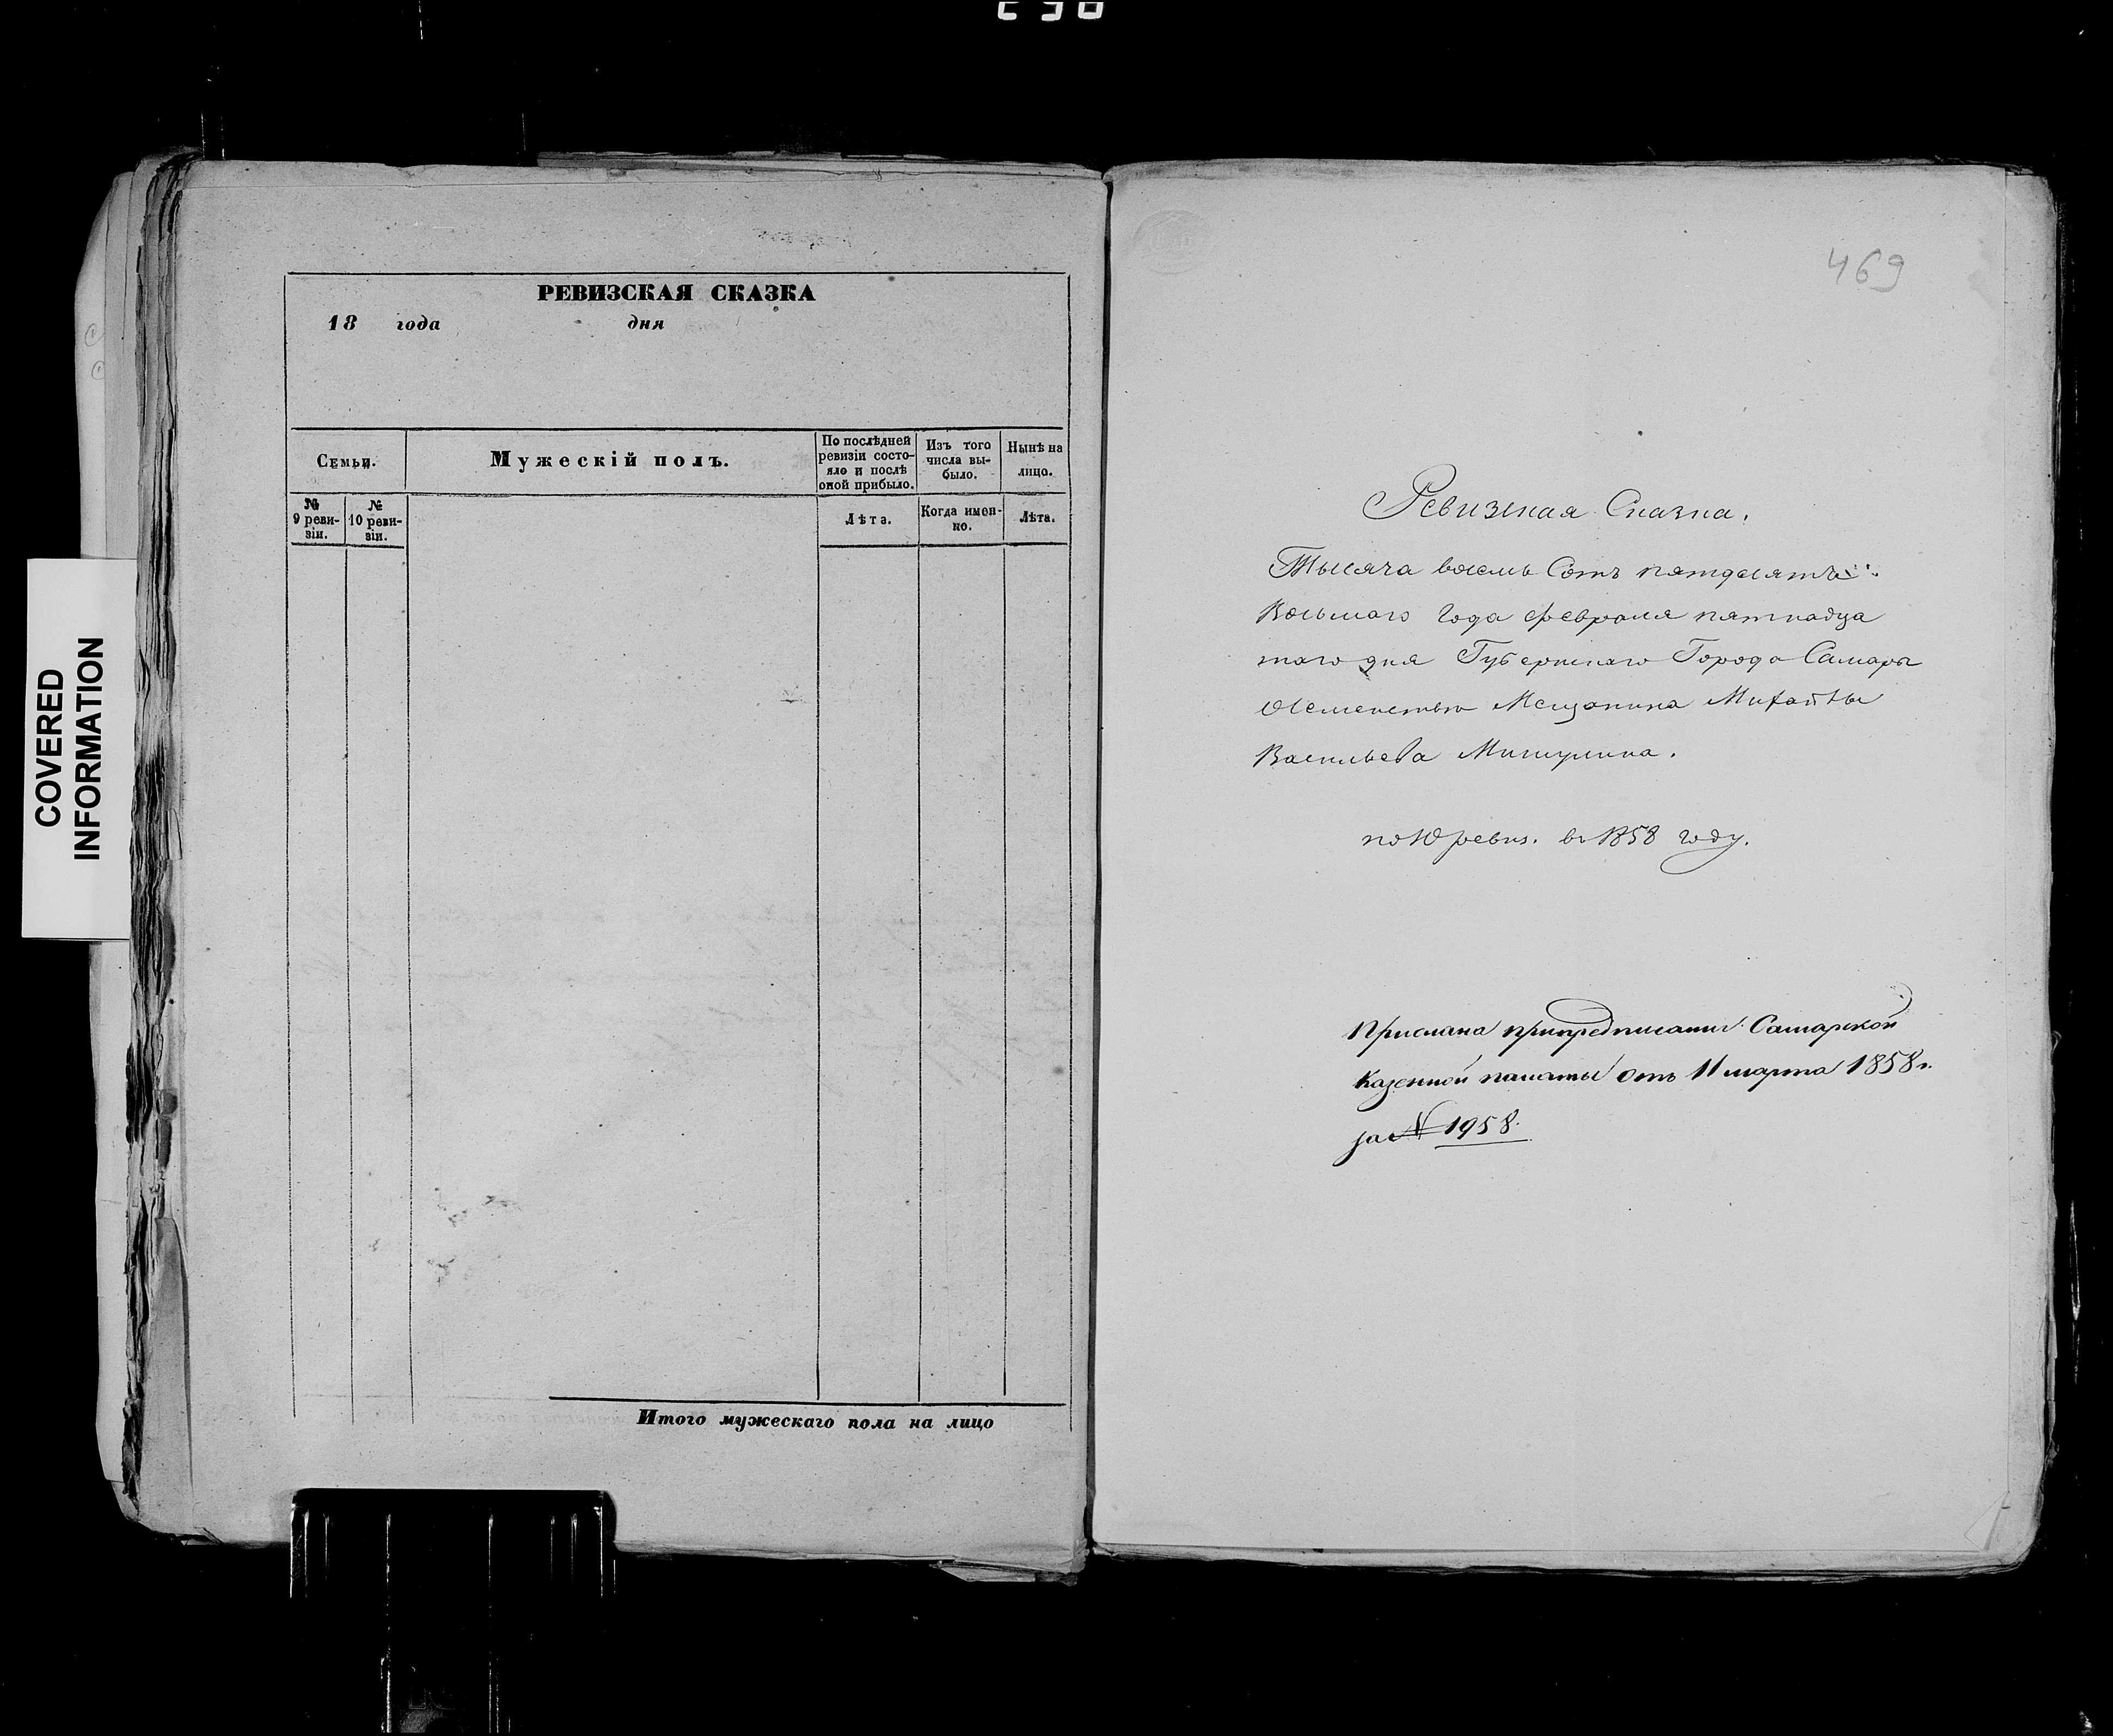 COVERED
INFORMATION
РЕВИЗСКАЯ СКАЗКА
18 года дня
Семьи.
Мужескій полъ.
По послѣдней
ревизіи состо-
яло и послѣ
оной прибыло.
Изъ того
числа вы-
было.
Нынѣ на
лицо.
№
9 реви-
зіи.
№
10 реви-
зіи.
Лѣта.
Когда имен-
но.
Лѣта.
Итого мужескаго пола на лицо
469
Ревизская Сказка.
Тысяча восемь Сотъ пятдесятъ
Восьмаго Года февраля пятнадца
таго дня Губернскаго Города Самары
Мещанина Михайлы
Васильева Мишулина.
по 10 ревиз. въ 1858 году.
Прислана припредписании Самарской
Казенной палаты отъ 11 марта 1858 г.
за № 1958.